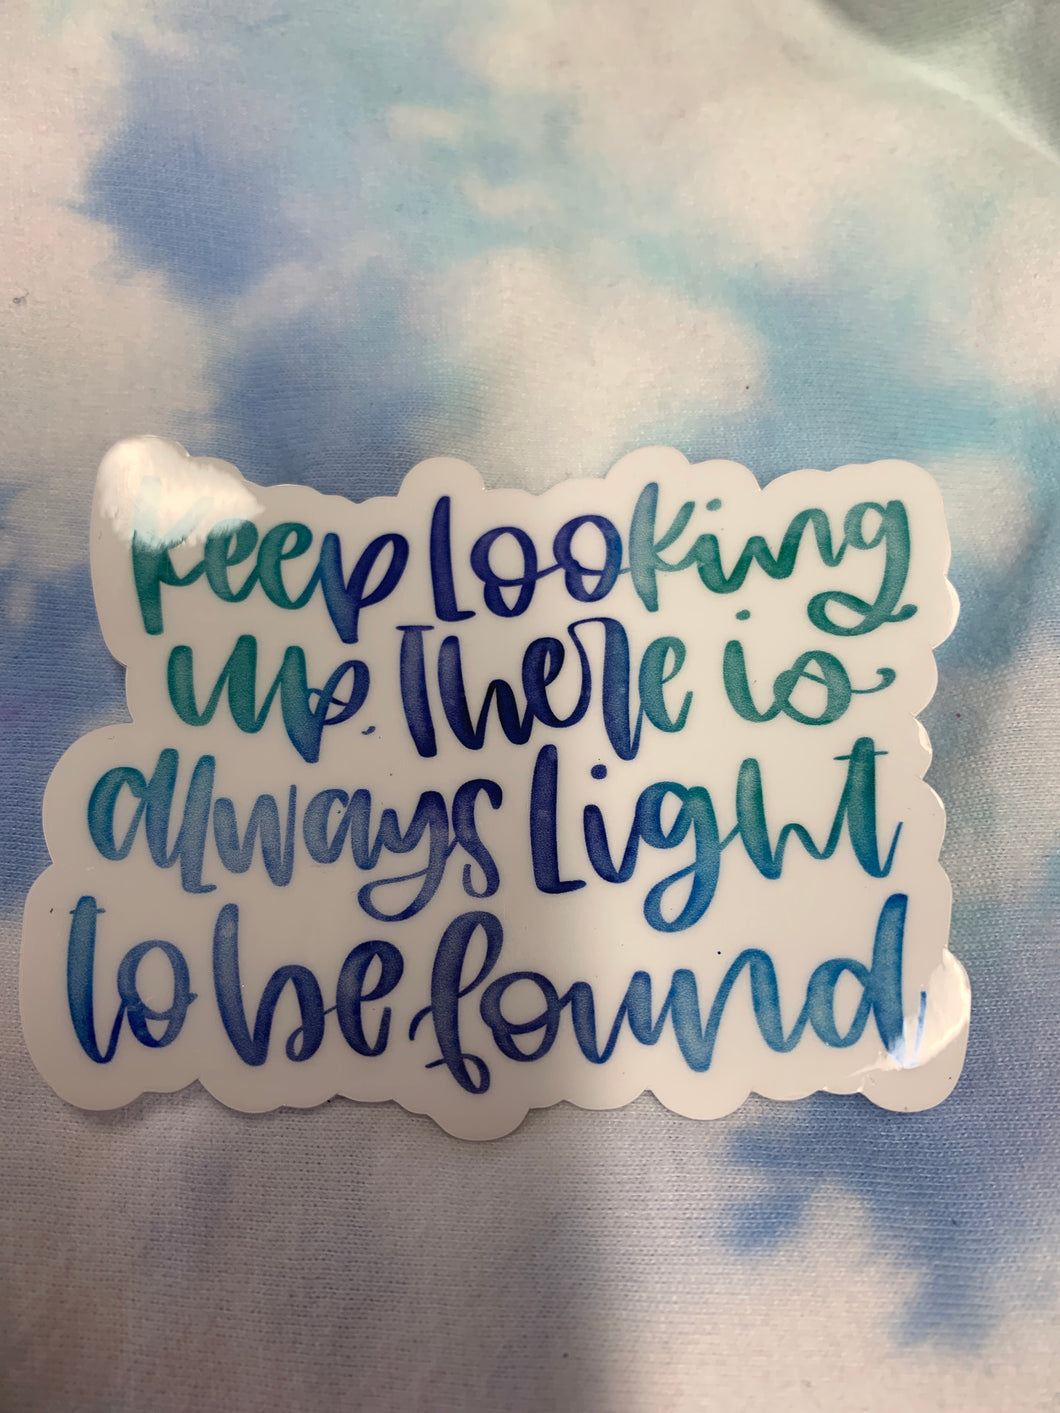 keep looking
up. There is
always light
to be found